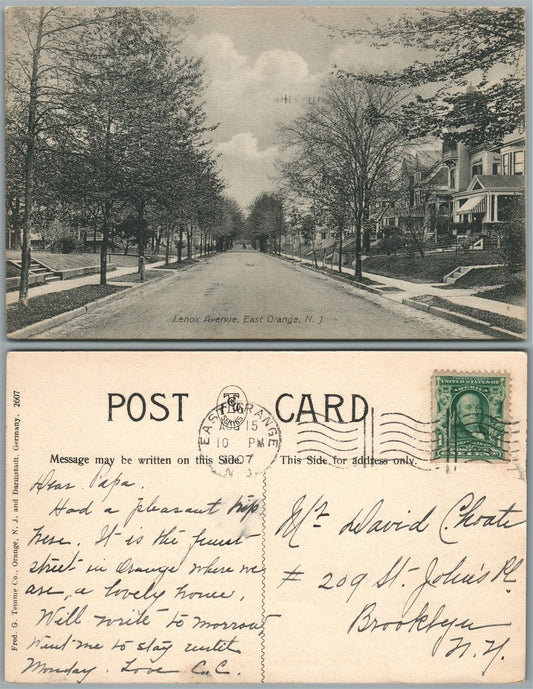 Lenox Avenue, East Orange, N. J.
POST CARD
EAST ORANGE
15
10 PM
07
N J
UNITED STATES
OF AMERICA
Message may be written on this Side.
This Side for address only.
Fred. G. Temme Co., Orange, N. J. and Darmstadt, Germany. 2607
Dear Papa.
Had a pleasant trip
here. It is the finest
street in Orange where we
are, a lovely house,
Will write to morrow,
Want me to stay until
Monday. Love C.C.
Mr. David Choate
# 209 St. John's Pl
Brooklyn
N.Y.